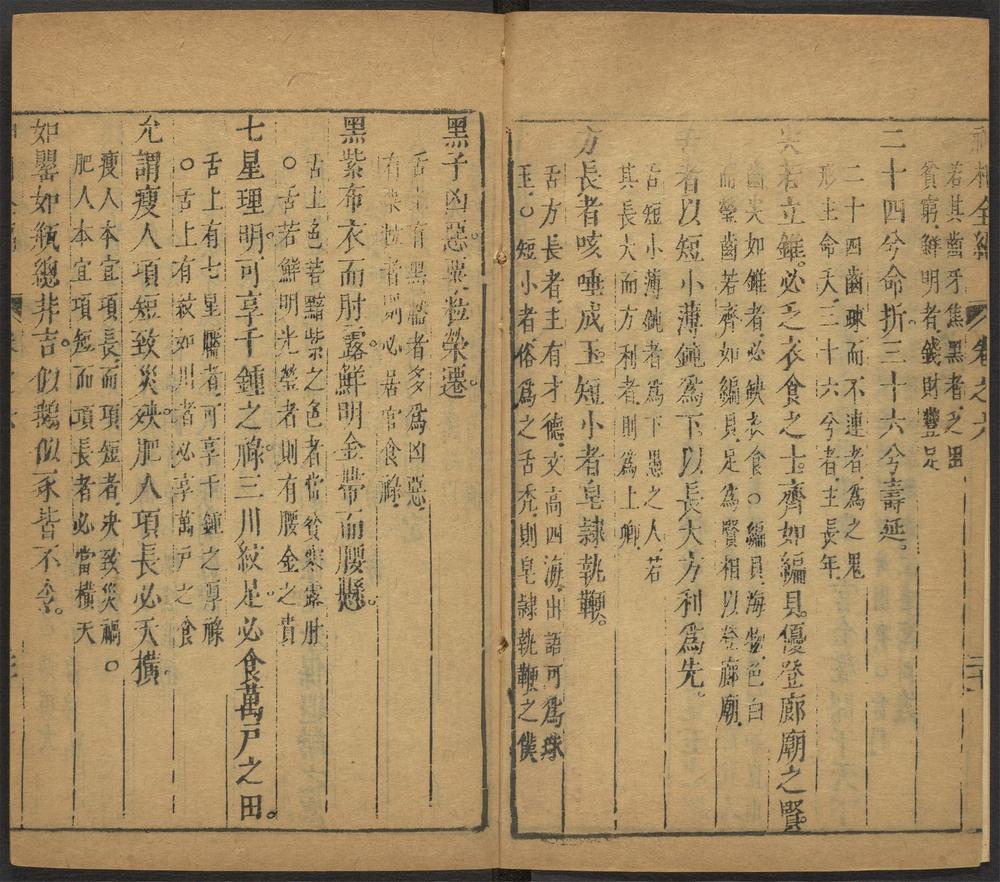 神相全編 卷之六
若其齒牙焦黑者乏田
貧窮鮮明者錢財豐足
二十四兮命折三十六兮壽延。
二十四齒疎而不連者為之鬼
形主命夭三十六兮者主長年
尖若立錐。必乏衣食之士。齊如編貝。優登廊廟之賢
齒尖如錐者必缺衣食○編貝海物色白
而瑩齒若齊如編貝足為賢相以登廊廟
舌者以短小薄鈍為下以長大方利為先。
舌短小薄鈍者為下愚之人若
其長大而方利者則為上卿
方長者咳唾成玉。短小者皂隸執鞭。
舌方長者主有才德文高四海出語可為珠
玉○短小者俗為之舌禿則皂隸執鞭之僕
黑子凶惡。粟粒榮遷。
舌上有黑黶者多為凶惡
有粟粒者則必居官食祿
黑紫布衣而肘露。鮮明金帶而腰懸。
舌上色若黯紫之色者當貧寒露肘
○舌若鮮明光瑩者則有腰金之貴
七星理明。可享千鍾之祿。三川紋足。必食萬戶之田。
舌上有七星黶者可享千鍾之厚祿
○舌上有紋如川者必享萬戶之食
允謂瘦人項短致災殃。肥人項長必夭橫。
瘦人本宜項長而項短者決致災禍○
肥人本宜項短而項長者必當橫夭
如罌如瓶總非吉。似鵝似豕皆不令。